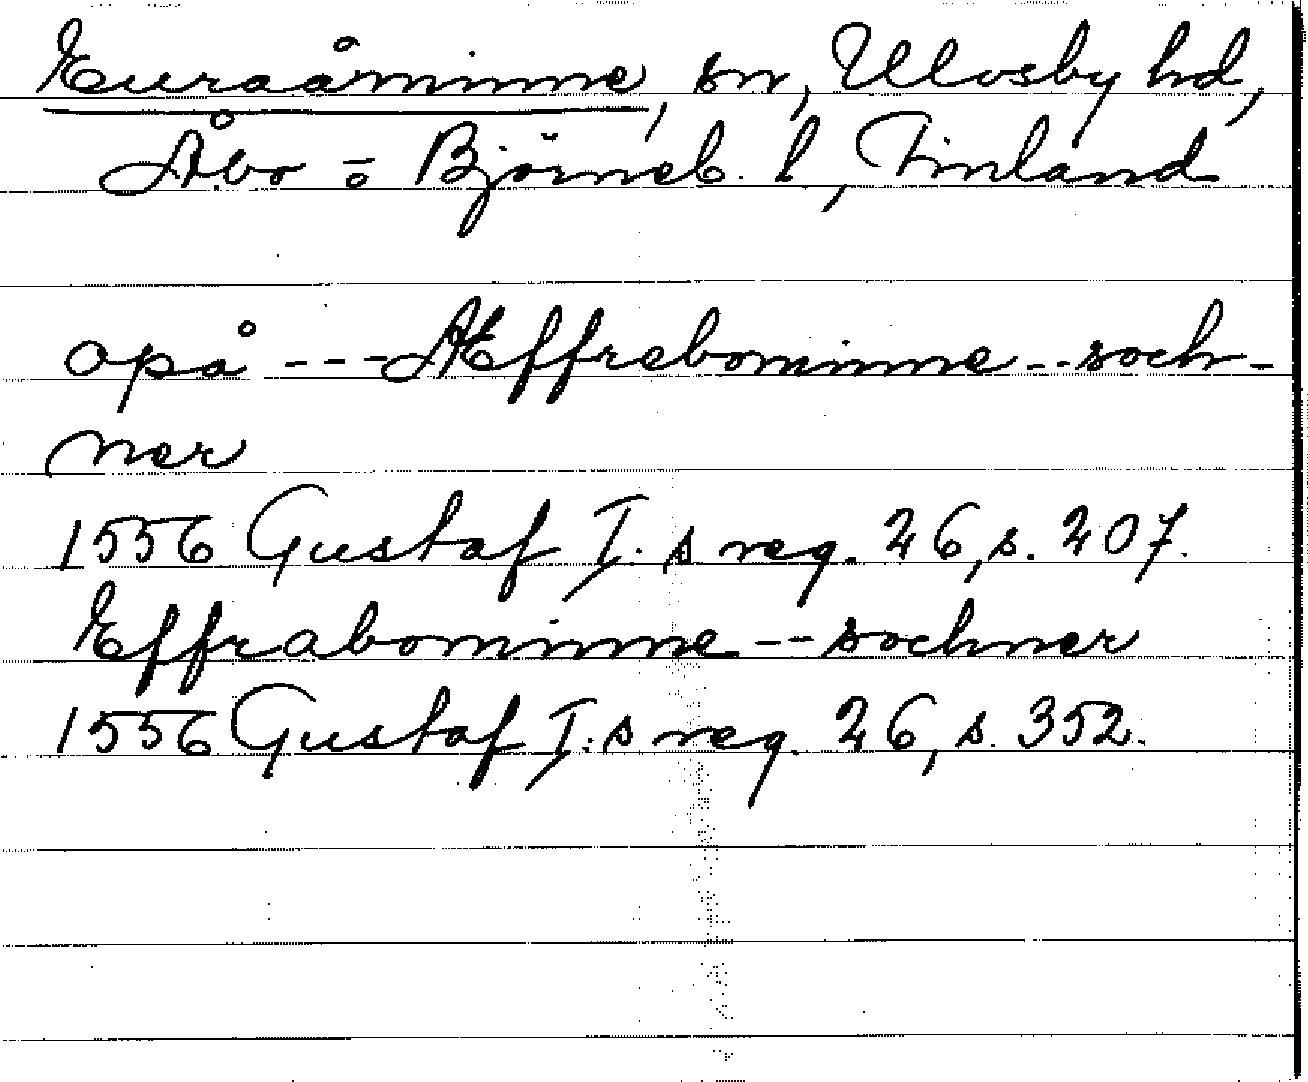 Euraåminne, sn, Ulvsby hd,
Åbo o Björneb. l, Finland
opå --- Æffrebominne -- soch-
ner
1556 Gustaf I:s reg. 26, s. 207.
Effrabominne -- sochner
1556 Gustaf I:s reg. 26, s. 352.